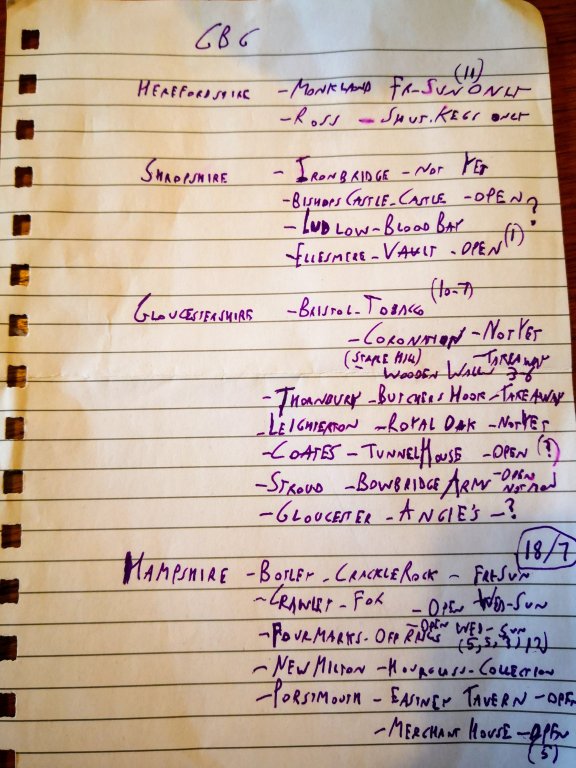 GBG
HEREFORDSHIRE - MONKLAND FR-SUN ONLY (11)
- ROSS - SHUT. KEGS ONLY
SHROPSHIRE - IRONBRIDGE - NOT YET
- BISHOPS CASTLE - CASTLE - OPEN
- LUDLOW - BLOOD BAY ?
- ELLESMERE - VAULT - OPEN (1)
GLOUCESTERSHIRE - BRISTOL - TOBACO (10-7)
- CORONATION - NOT YET
(STAPE HILL) WOODEN WALLS - TAKEAWAY 3-6
- THORNBURY - BUTCHERS HOOK - TAKEAWAY
- LEIGHTERTON - ROYAL OAK - NOT YET
- COATES - TUNNEL HOUSE - OPEN (?)
- STROUD - BOWBRIDGE ARMS - OPEN NOT MON
- GLOUCESTER - ANGIE'S - ?
18/7
HAMPSHIRE - BOTLEY - CRACKLEROCK - FRI-SUN
- CRAWLEY - FOX - OPEN WED-SUN
- FOURMARKS - OFF RAILS - OPEN WED-SUN
(5, 5, , 12)
- NEW MILTON - HOURGLASS - COLLECTION
- PORSTMOUTH - EASTNEY TAVERN - OPEN
- MERCHANT HOUSE - OPEN
(5)